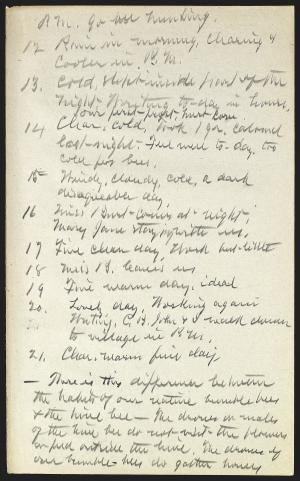 P.M. go bee hunting.
12 Rain in morning, clearing &
cooler in P.M.
13. Cold, shut inside part of the
night. Writing to-day in house.
our first frost, must come
14 Clear, cold, took 1 gr. calomel
last night. Feel well to-day, too
cold for bees.
15 Windy, cloudy, cold, a dark
disagreeable day.
16 Miss B comes at night;
Mary Jane stays with us.
17 Fine clear day, work but little
18 Miss B. leaves us
19 Fine warm day, ideal
20. Lovely day, Working again
Writing, C.B. John & I walk down
to village in P.M.
21. Clear, warm fine day
— There is this difference between
the habits of our native bumble bees
& the hive bee — The drones or males
of the hive bee do not visit the flowers
or feed outside the hive. The drones of
our bumble-bees do gather honey